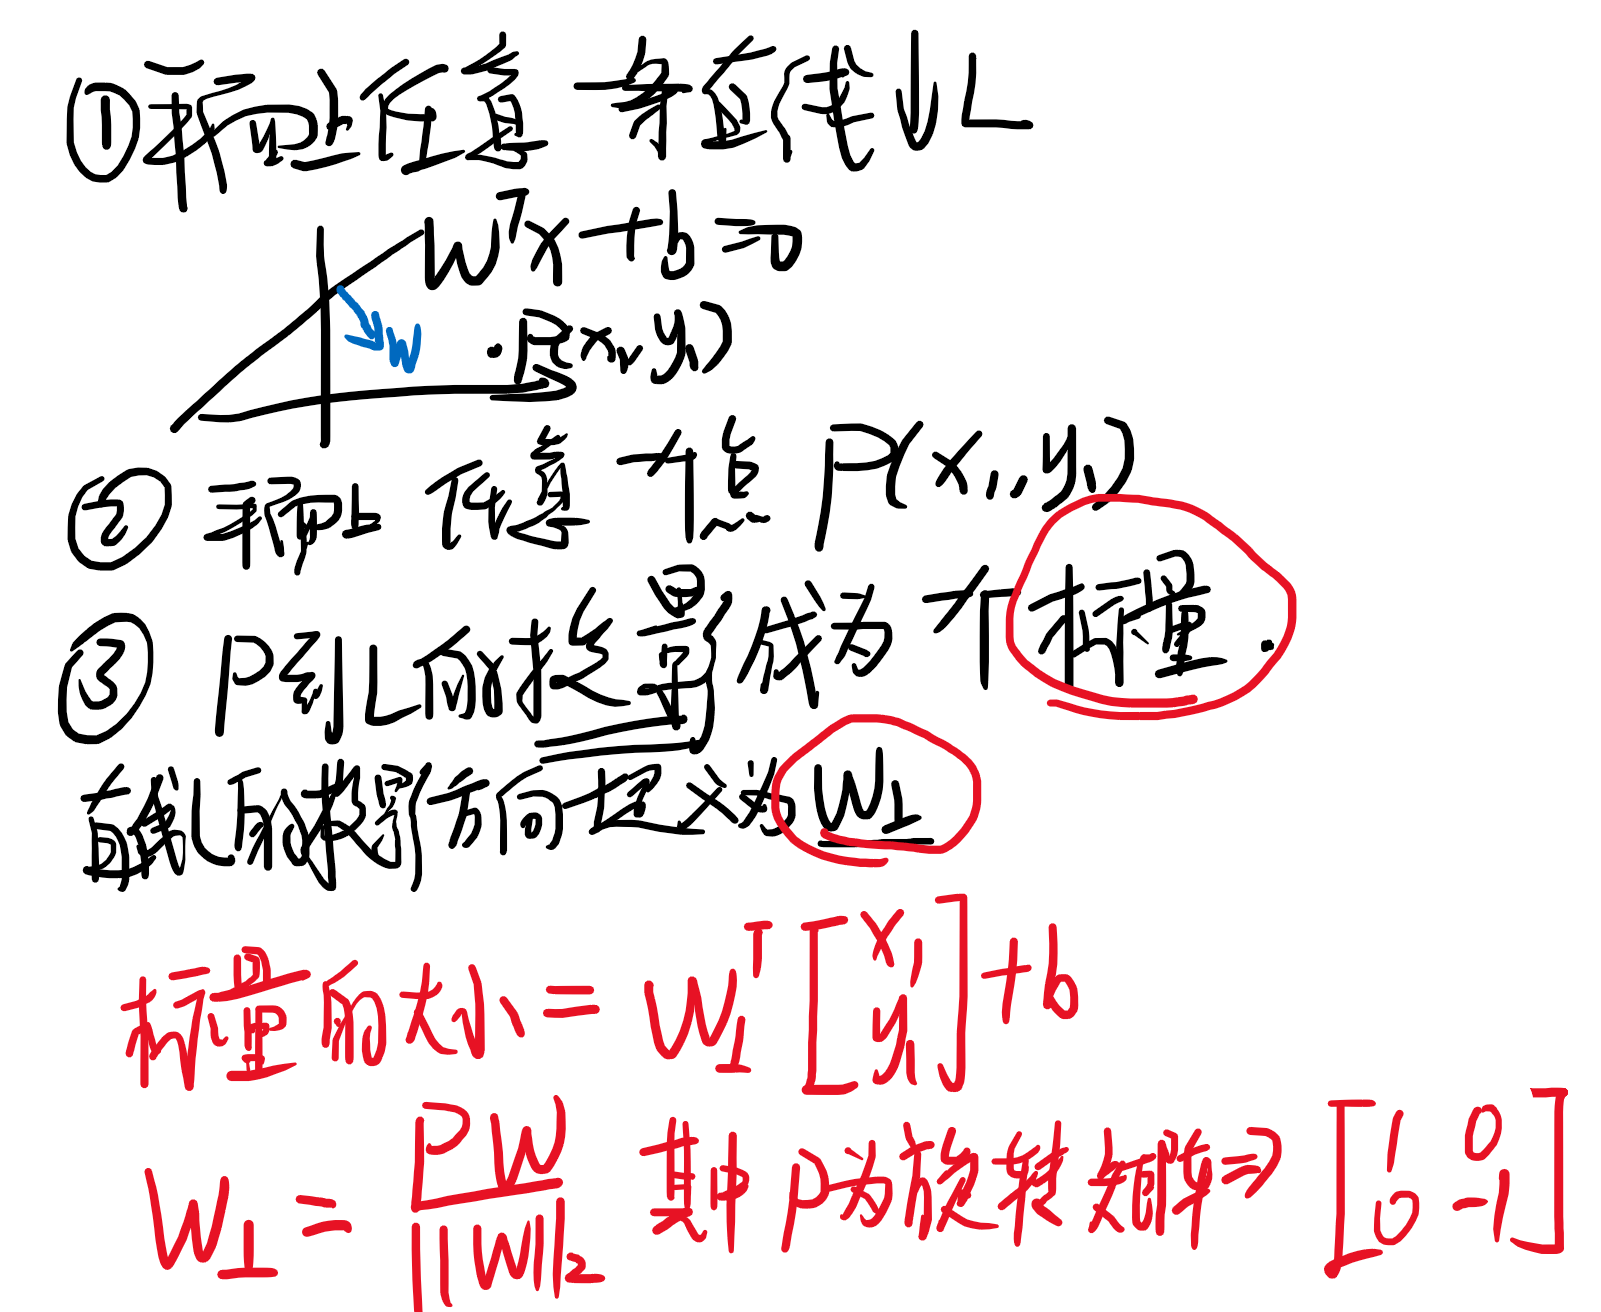 ① 平面上任意一条直线 L
W^T x + b = 0
W
P(x₁, y₁)
② 平面上任意一个点 P(x₁, y₁)
③ P到L的投影成为一个标量.
直线L的投影方向定义为 W⊥
标量的大小 = W⊥^T [x₁ y₁] + b
W⊥ = PW / ||W||₂ 其中 P为旋转矩阵 ⇒ [1 0 0 -1]